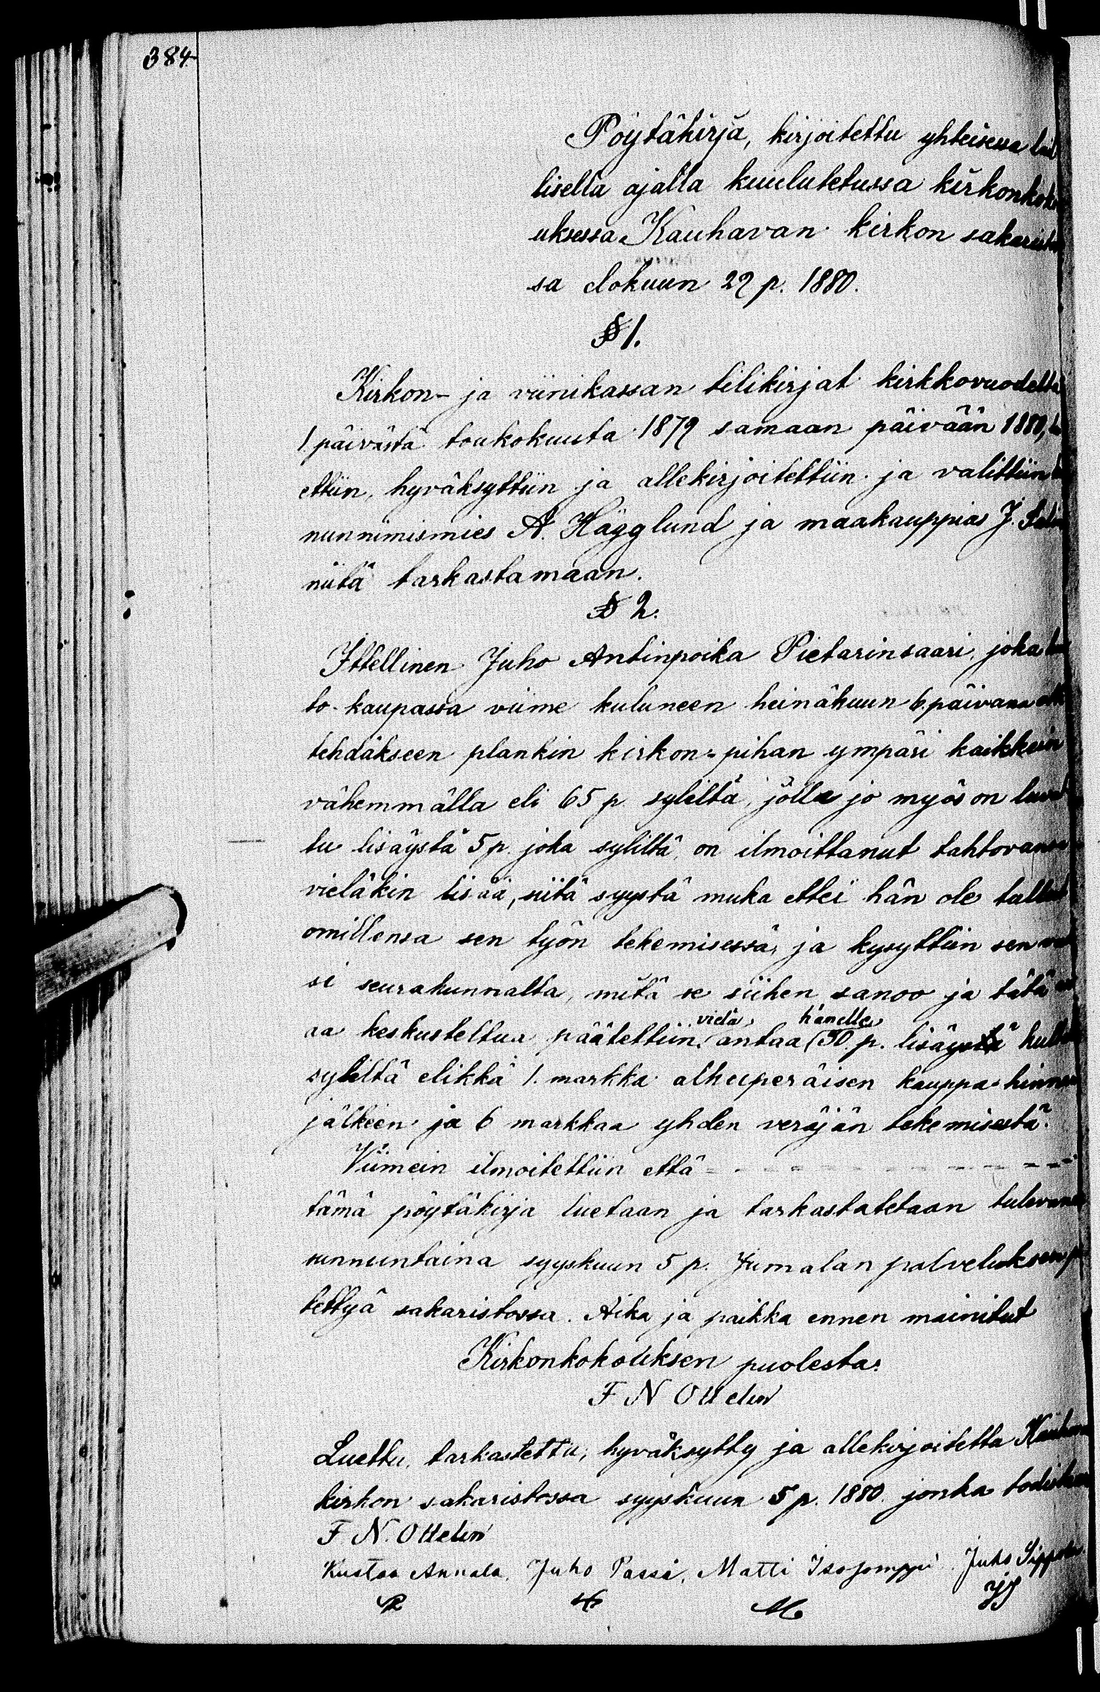 384
Pöytäkirja, kirjoitettu yhteisessa lail
lisella ajalla kuulutetussa kirkonkoko
uksessa Kauhavan kirkon sakaristos
sa elokuun 29 p. 1880.
§ 1.
Kirkon- ja viinikassan tilikirjat kirkkovuodelta
1 päivästä toukokuuta 1879 samaan päivään 1880,
ettiin, hyväksyttiin ja allekirjoitettiin ja valittiin
nunnimismies A. Hägglund ja maakauppias J.
niitä tarkastamaan.
§ 2.
Ittellinen Juho Antinpoika Pietarinsaari, joka
to-kaupassa viime kuluneen heinäkuun 6. päivänä
tehdäkseen plankin kirkon=pihan ympäri kaikkein
vähemmällä eli 65 p. syleltä, jolle jo myös on luvat
tu lisäystä 5 p. joka syleltä, on ilmoittanut tahtovansa
vieläkin lisää, siitä syystä muka ettei hän ole tullut
omillensa sen työn tekemisessä, ja kysyttiin sen
si seurakunnalta, mitä se siihen sanoo ja tätä
vielä, hänelle,
aa keskusteltua päätettiin antaa (30. p. lisäystä kulta
syleltä elikkä 1. markka alkuperäisen kauppa-hinnan
jälkeen ja 6 markkaa yhden veräjän tekemisestä.
Viimein ilmoitettiin että - - - - - - - - -
tämä pöytäkirja luetaan ja tarkastatetaan tulevana
sunnuntaina syyskuun 5 p. Jumalan palveluksen
tettyä sakaristossa. Aika ja paikka ennen mainitut
Kirkonkokouksen puolesta:
F N Ottelin
Luettu, tarkastettu, hyväksytty ja allekirjoitettu Kauhavan
kirkon sakaristossa syyskuun 5 p. 1880. jonka todistavat
F N. Ottelin
Kustaa Annala, Juho Passi, Matti Isojomppi Juho Sippola
M JS